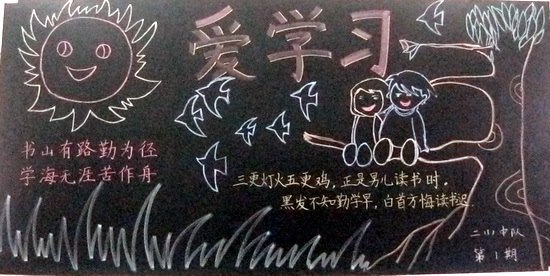 爱学习
书山有路勤为径
学海无涯苦作舟
三更灯火五更鸡，正是男儿读书时。
黑发不知勤学早，白首方悔读书迟
二(1)中队
第1期